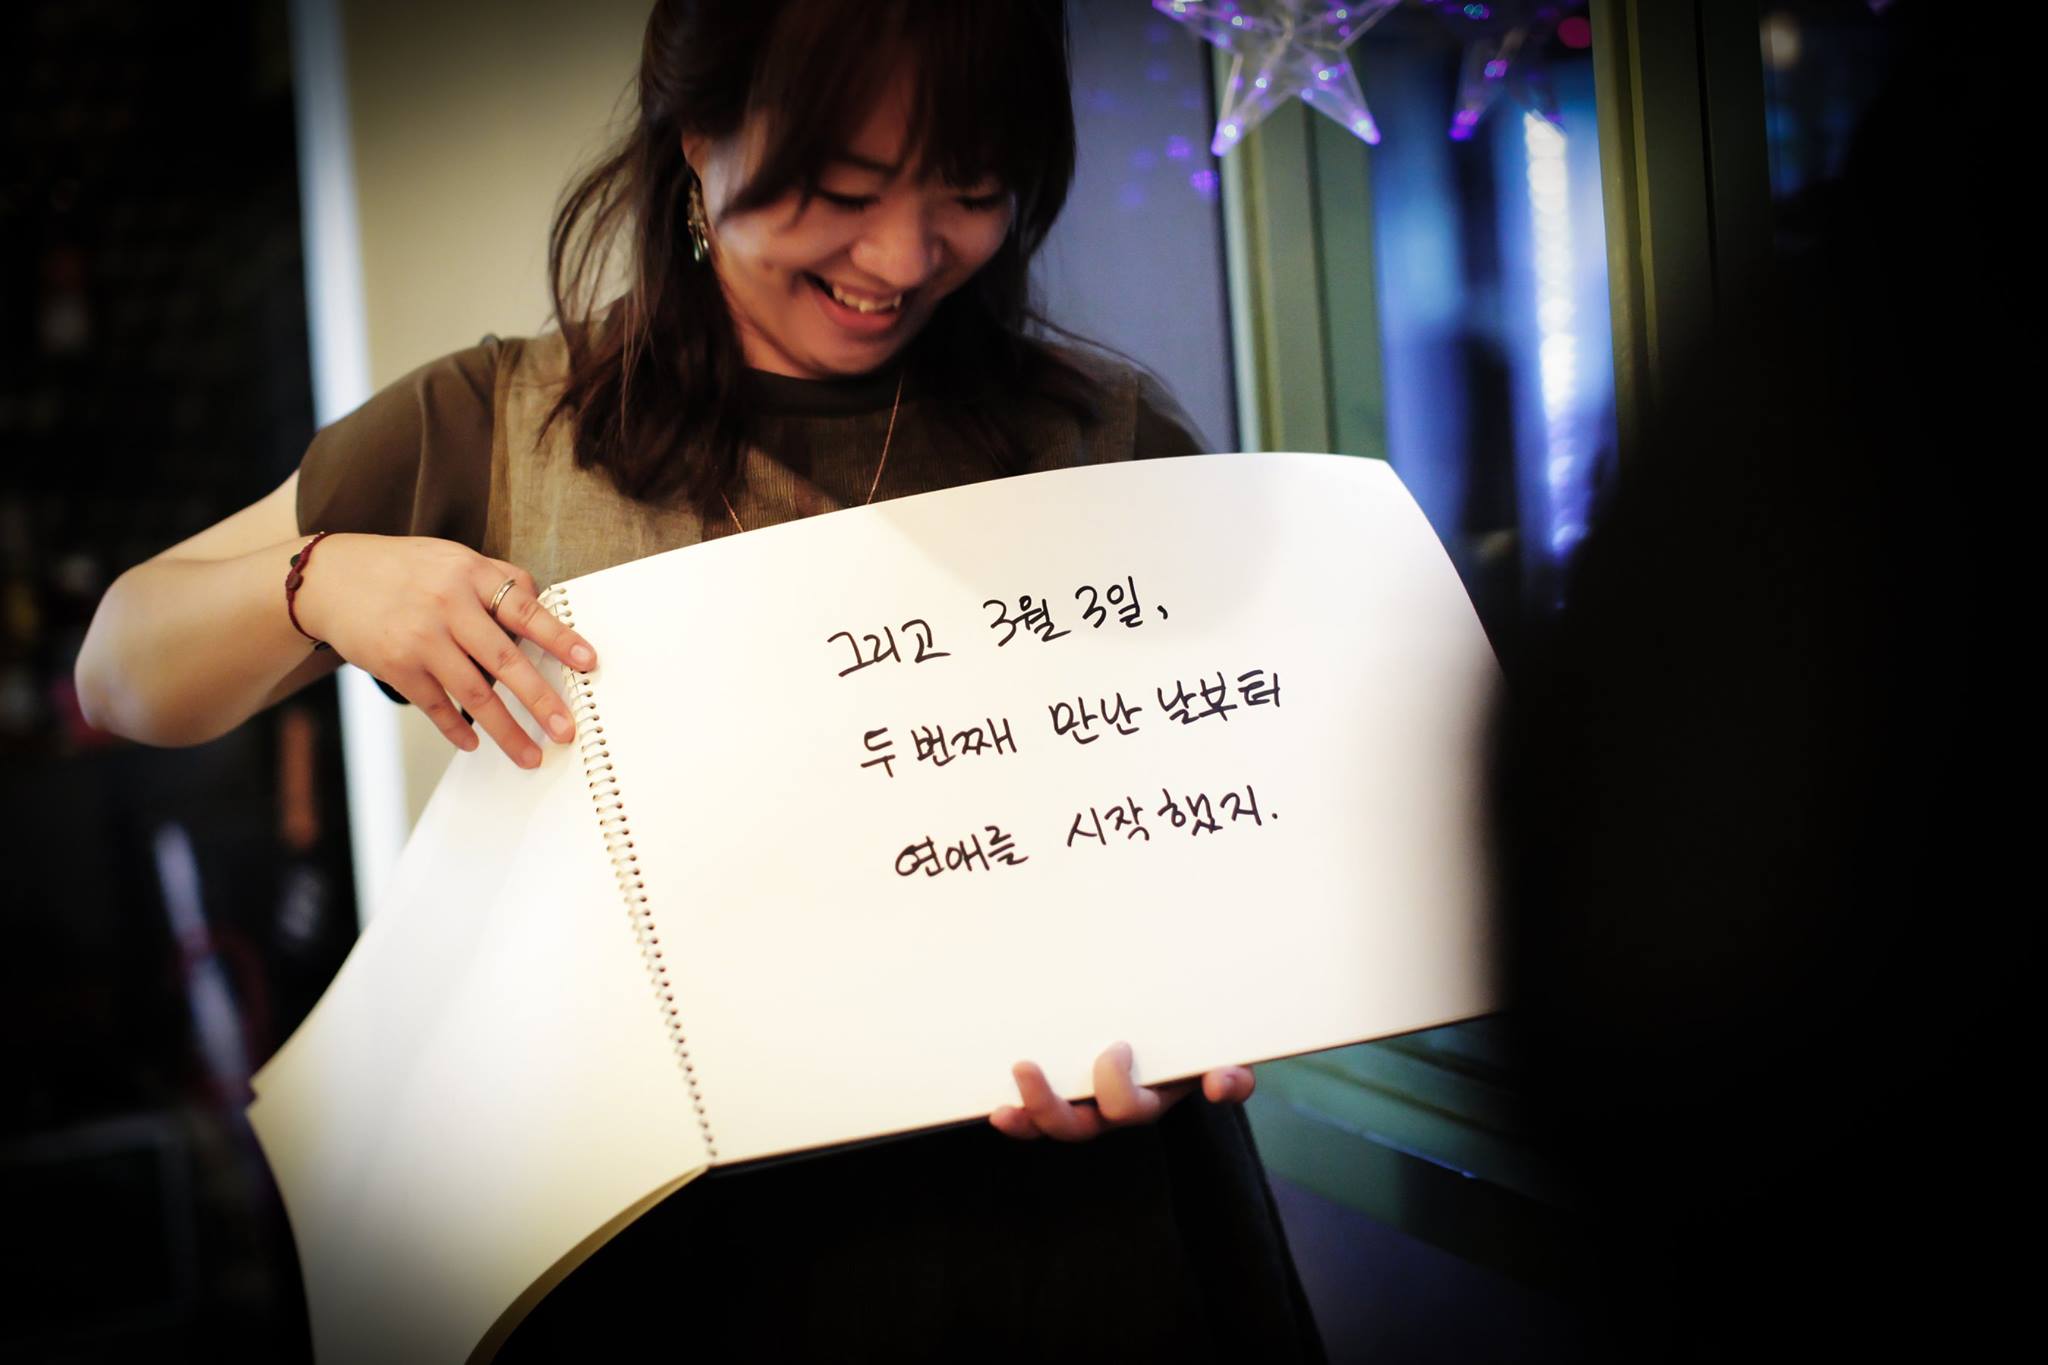 그리고 3월 3일,
두 번째 만난 날부터
연애를 시작했지.